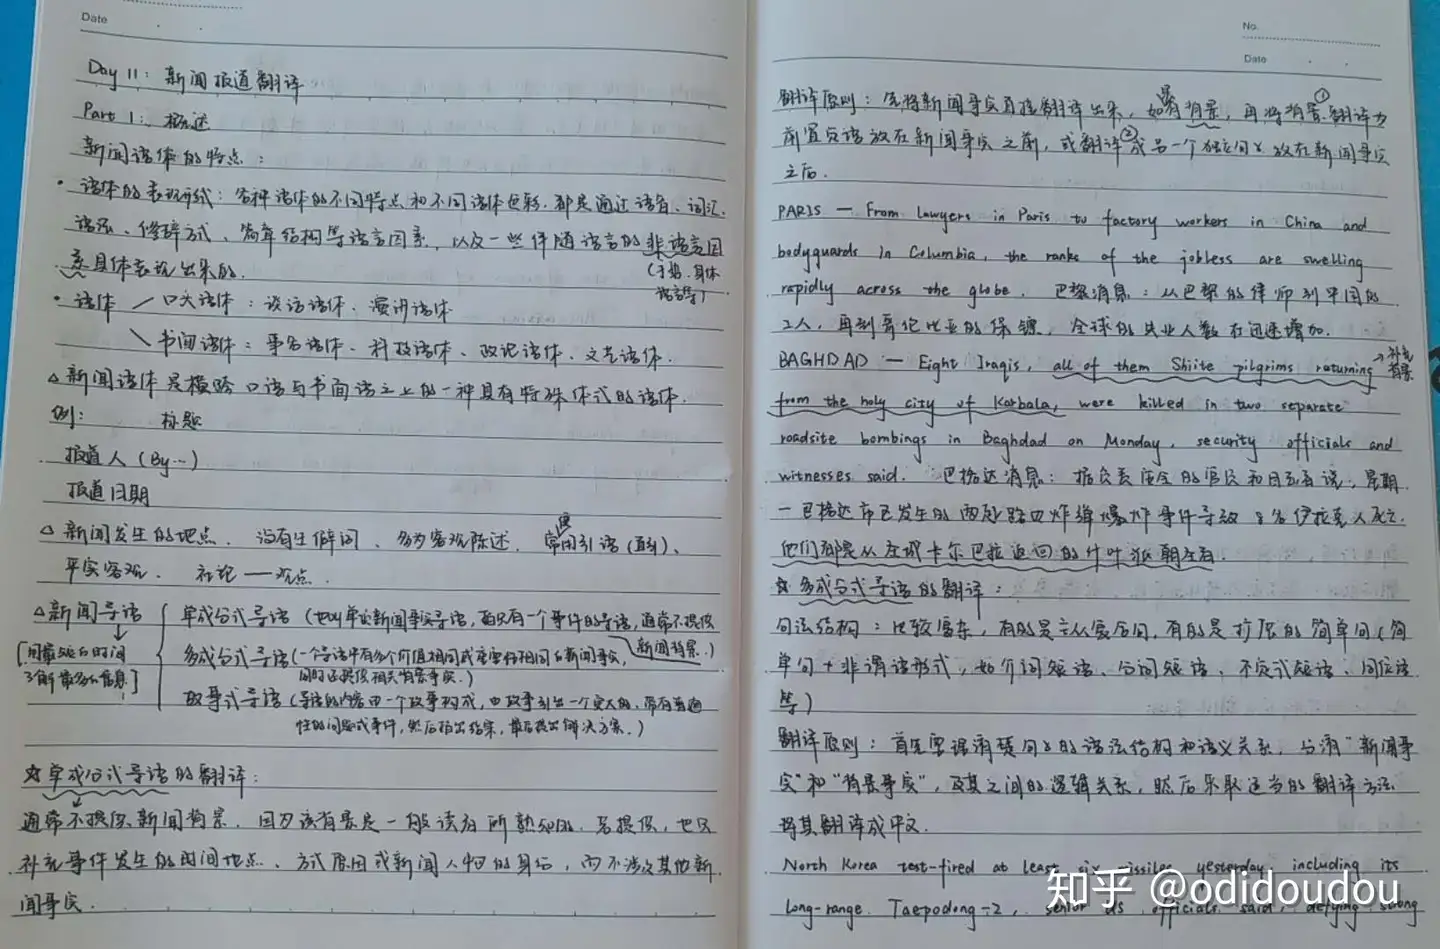 Date
Day 11: 新闻报道翻译
Part 1: 概述
新闻语体的特点:
· 语体的表现形式: 各种语体的不同特点和不同语体色彩, 都是通过语音、词汇、
语法、修辞方式、篇章结构等语言因素, 以及一些伴随语言的非语言因
素具体表现出来的.
(手势、身体
语言等)
· 语体 口头语体: 谈话语体、演讲语体
书面语体: 事务语体、科技语体、政论语体、文艺语体.
△ 新闻语体是横跨口语与书面语之上的一种具有特殊体式的语体.
例: 标题
报道人 (By…)
报道日期
△ 新闻发生的地点. 没有生僻词、多为客观陈述. 常用引语(直引)、
平实客观. 社论——观点.
△ 新闻导语
[用最短的时间
了解最多的信息]
单成分式导语 (也叫单项新闻事实导语, 即只有一个事件的导语, 通常不提供
新闻背景.)
多成分式导语 (一个导语中有多个价值相同或重要性相同的新闻事实,
同时还提供相关背景事实.)
故事式导语 (导语的内容由一个故事构成, 由故事引出一个更大的, 带有普遍
性的问题或事件, 然后指出结果, 最后提出解决方案.)
☆ 单成分式导语的翻译:
通常不提供新闻背景. 因为该背景是一般读者所熟知的. 若提供, 也只
补充事件发生的时间地点、方式原因或新闻人物的身份, 而不涉及其他新
闻事实.
No.
Date
翻译原则: 先将新闻事实直接翻译出来, 如果有背景, 再将背景①翻译为
前置定语放在新闻事实之前, 或翻译②成另一个独立句放在新闻事实
之后.
PARIS — From lawyers in Paris to factory workers in China and
bodyguards in Columbia, the ranks of the jobless are swelling
rapidly across the globe. 巴黎消息: 从巴黎的律师到中国的
工人, 再到哥伦比亚的保镖, 全球的失业人数在迅速增加.
BAGHDAD — Eight Iraqis, all of them Shiite pilgrims returning
→ 补充
背景
from the holy city of Karbala, were killed in two separate
roadsite bombings in Baghdad on Monday, security officials and
witnesses said. 巴格达消息: 据负责安全的官员和目击者说, 星期
一巴格达市已发生的两起路边炸弹爆炸事件导致8名伊拉克人死亡.
他们都是从圣城卡尔巴拉返回的什叶派朝圣者.
☆ 多成分式导语的翻译:
句法结构: 比较复杂, 有的是主从复合句, 有的是扩展的简单句 (简
单句+非谓语形式, 如介词短语、分词短语、不定式短语、同位语
等)
翻译原则: 首先要理清楚句子的语法结构和语义关系, 分清"新闻事
实"和"背景事实", 及其之间的逻辑关系, 然后采取适当的翻译方法
将其翻译成中文.
North Korea test-fired at least six missiles yesterday, including its
long-range Taepodong-2, senior US officials said, defying strong
知乎 @odidoudou